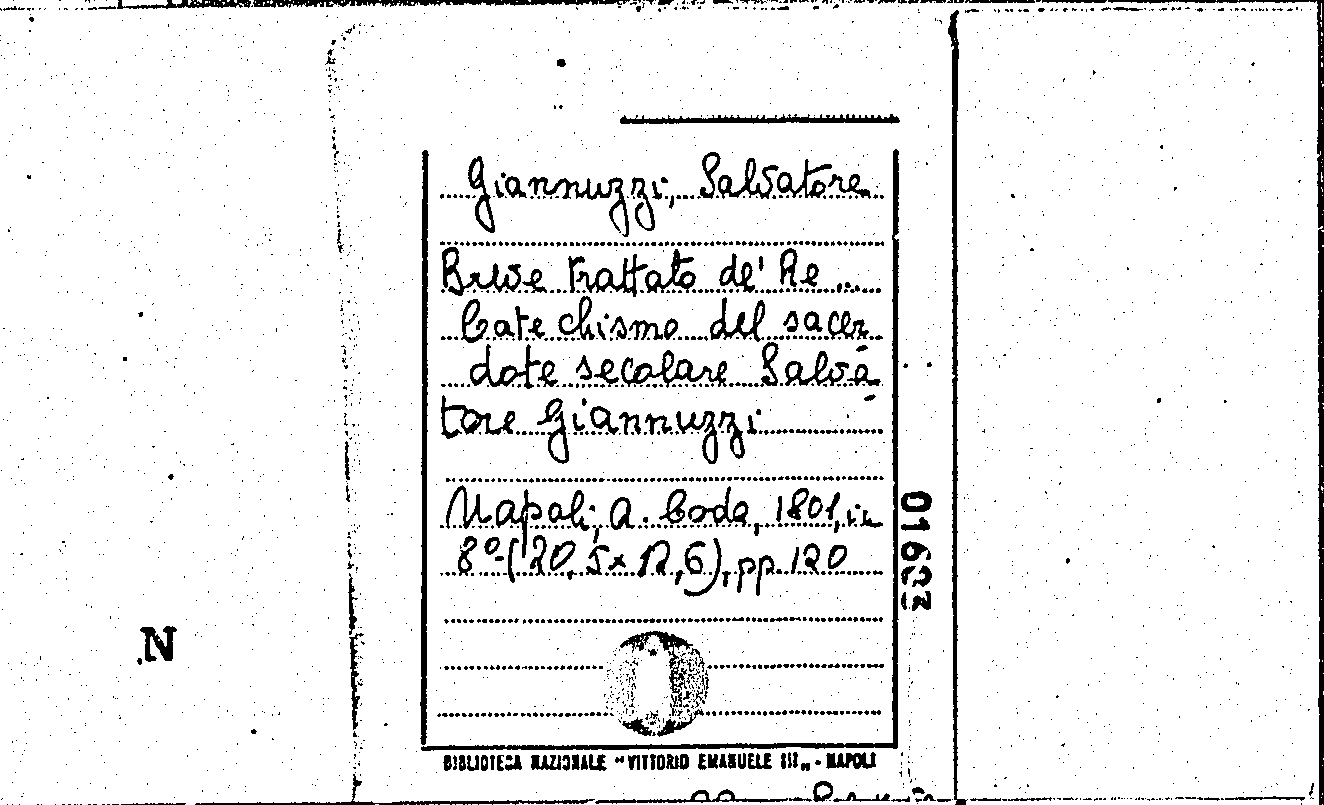 Giannuzzi, Salvatore
Breve trattato de' Re ...
Catechismo del sacer
dote secolare Salva
tore Giannuzzi
Napoli, A. Coda, 1801, in
8º (20,5x12,6), pp. 120
N
BIBLIOTECA NAZIONALE "VITTORIO EMANUELE III„ - NAPOLI